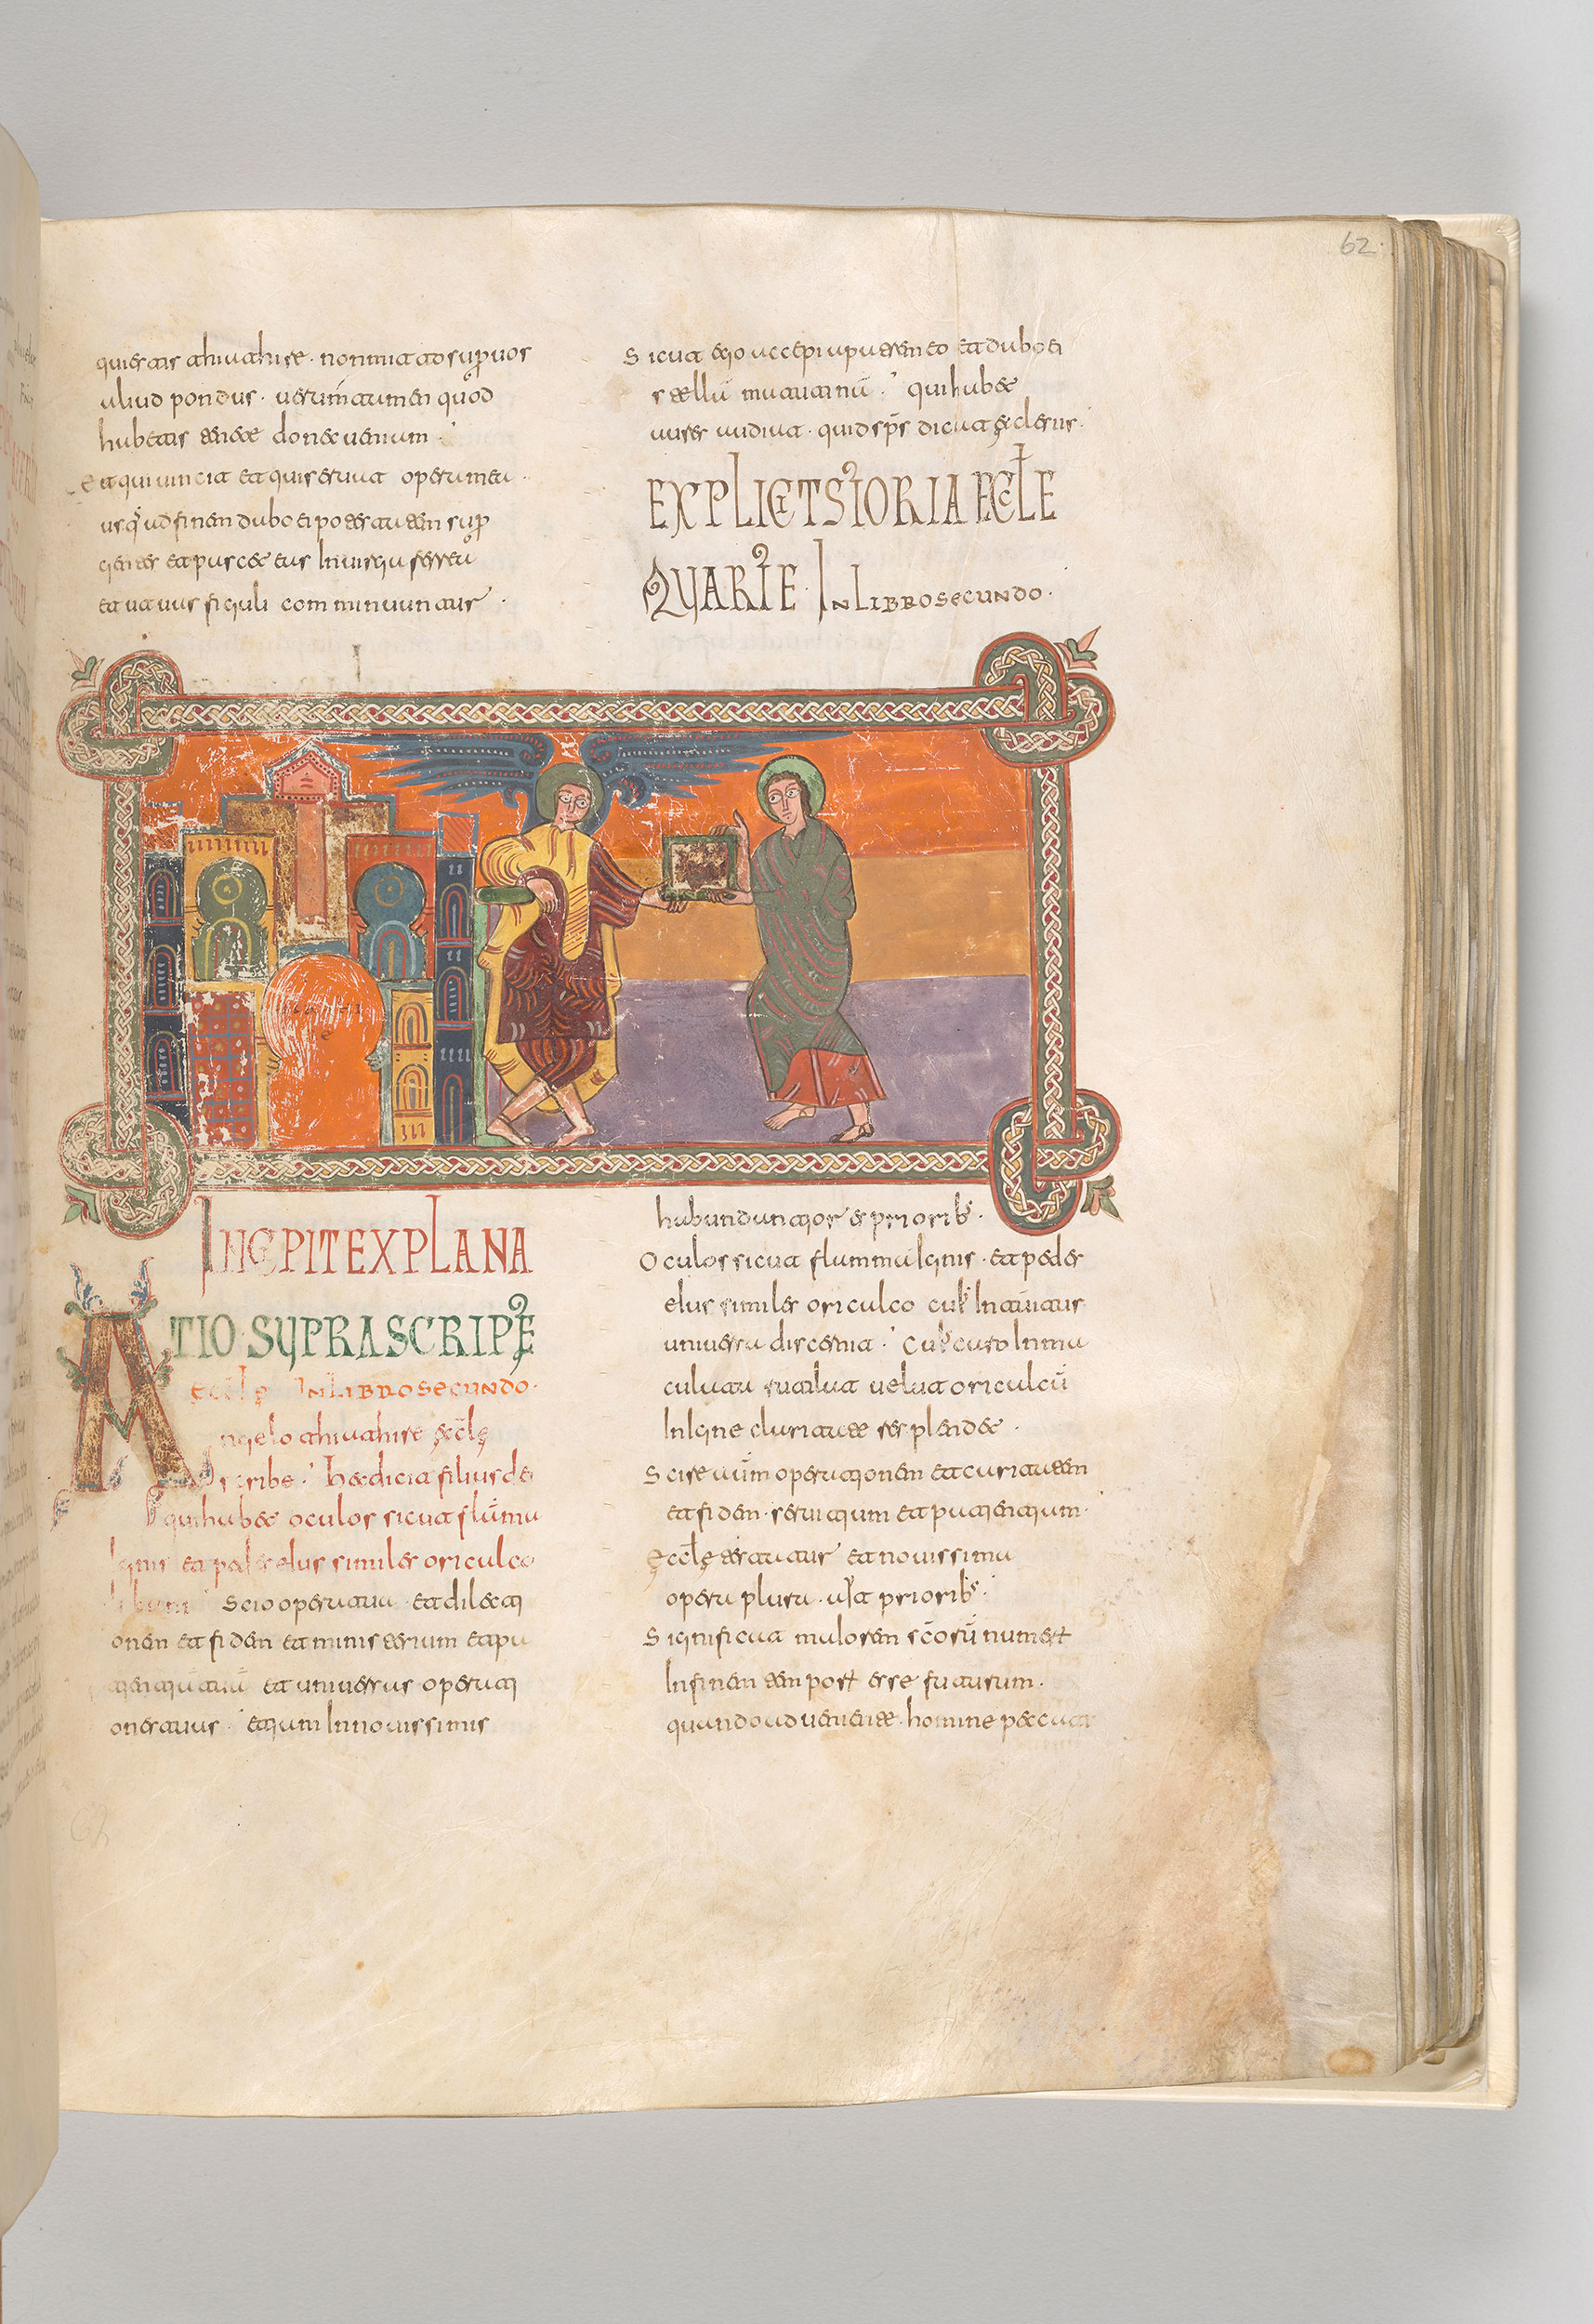 62
quiestis thiathire · non mittao sup uos
aliud pondus · uerumtamen quod
habetis tenete donec ueniam ·
Et qui uincit et qui serbat opera mea ·
usq ad finem dabo ei potestatem sup
gentes et pascet eas in uirga ferrea
et ut uas figuli comminuuntur ·
Sicut ego accepi a patre meo et dabo ei
stellā matutinā : qui habet
aures audiat · quid sps dicat ęclesiis ·
EXPLICIT STORIA ECLE
QUARTE IN LIBRO SECUNDO ·
INCIPIT EXPLANA
TIO SUPRASCRIPTE
ęclę IN LIBRO SECUNDO ·
Angelo thiathire ęclę
scribe : hec dicit filius dei
qui habet oculos sicut flāma
ignis et pedes eius similes oricalco
libani Scio opera tua et dilecti
onem et fidem et ministerium et pa
tientiā tuā et uniuersas operati
ones tuas · et tuam in nouissimis
habundantior est priorib ·
Oculos sicut flamma ignis · et pedes
eius similes oricalco cuius in tuitus
uniuersa discernit : cuius caro inma
culata rutilat uelut oricalcū
in igne claritate resplendet ·
Scire operationem et caritatem
et fidem · seruitium et patientium ·
ęclę testatur et nouissima
opera plura · priorib ·
Significat maiorem scorū numerū
in finem tempore esse futurum ·
quando aduenerit · homine peccati